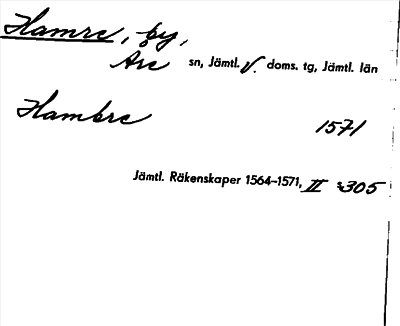 Hamre, by,
Åre sn, Jämtl. V. doms. tg, Jämtl. län
Hambre 1571
Jämtl. Räkenskaper 1564–1571, II s. 305